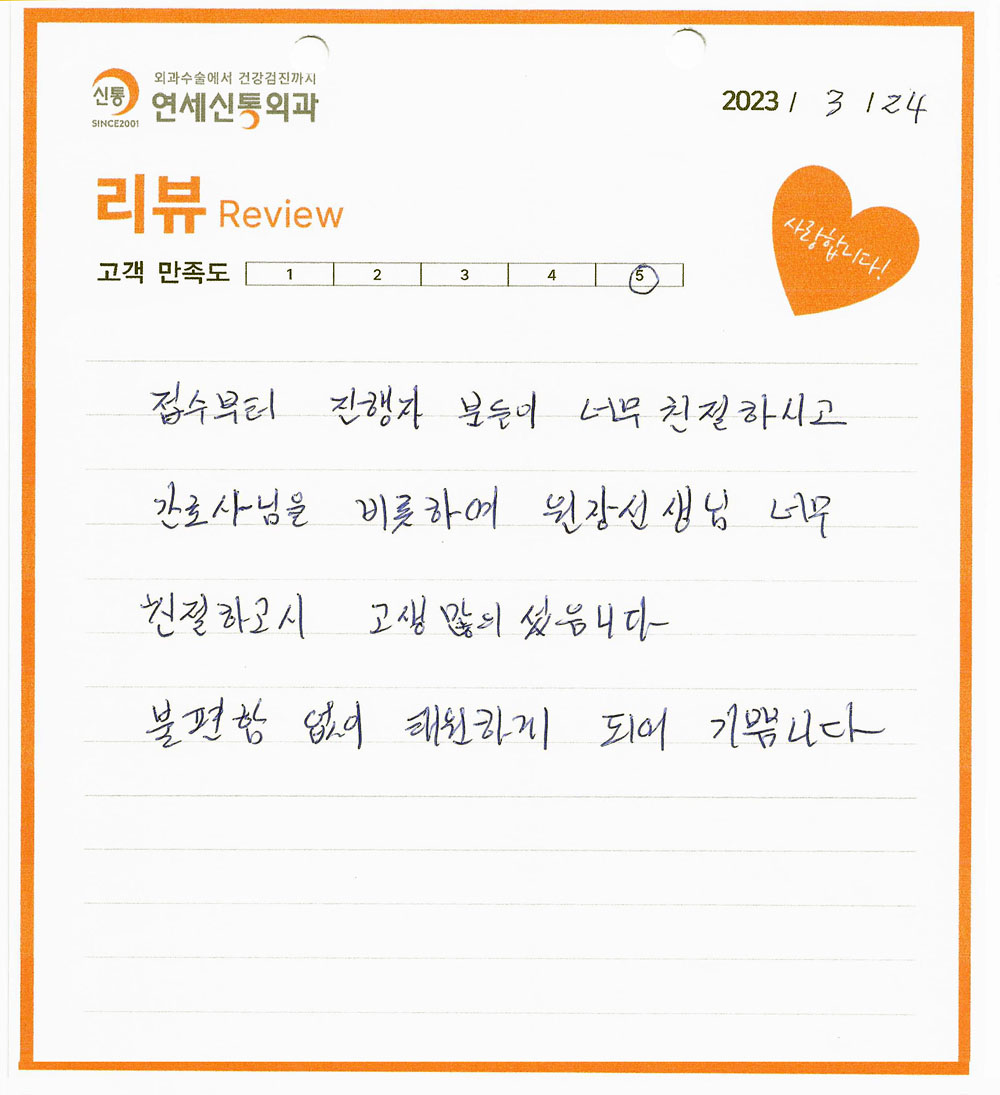 외과수술에서 건강검진까지
신통 연세신통외과
SINCE2001
2023 / 3 / 24
리뷰 Review
사랑합니다!
고객 만족도 1 2 3 4 5
접수부터 진행자 분든이 너무 친절하시고
간호사님을 비롯하여 원장선생님 너무
친절하고시 고생 많이 셨읍니다
불편함 없이 퇴원하게 되어 기쁩니다